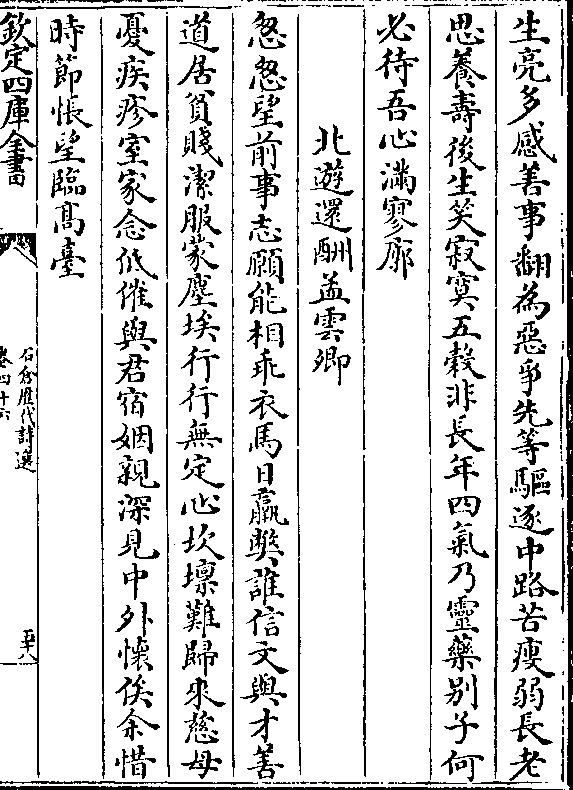 生亮多感善事翻為惡爭先等驅逐中路苦瘦弱長老
思養壽後生笑寂寞五穀非長年四氣乃靈藥別子何
必待吾心滿寥廓
北遊還酬孟雲卿
怱怱望前事志願能相乖衣馬日羸弊誰信文與才善
道居貧賤潔服蒙塵埃行行無定心坎壈難歸來慈母
憂疾疹室家念低催與君宿姻親深見中外懷俟余惜
時節悵望臨髙臺
欽定四庫全書
石倉歷代詩選
卷四十六
五十八